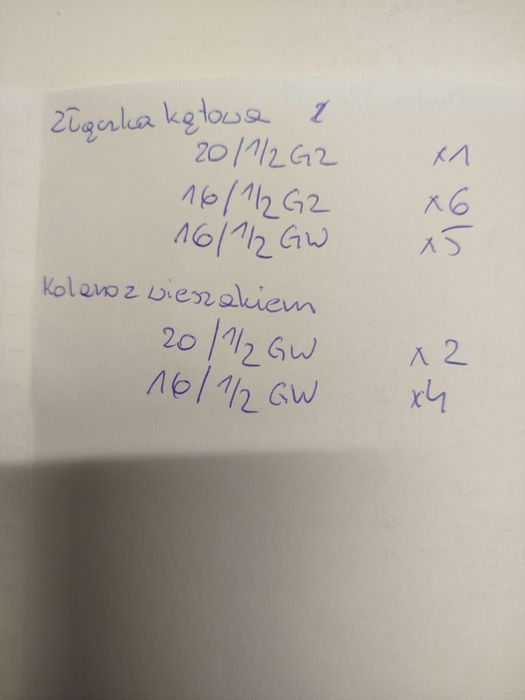 Złączka kątowa
20/1/2 GZ x1
16/1/2 GZ x6
16/1/2 GW x5
Kolano z wieszakiem
20/1/2 GW x2
16/1/2 GW x4